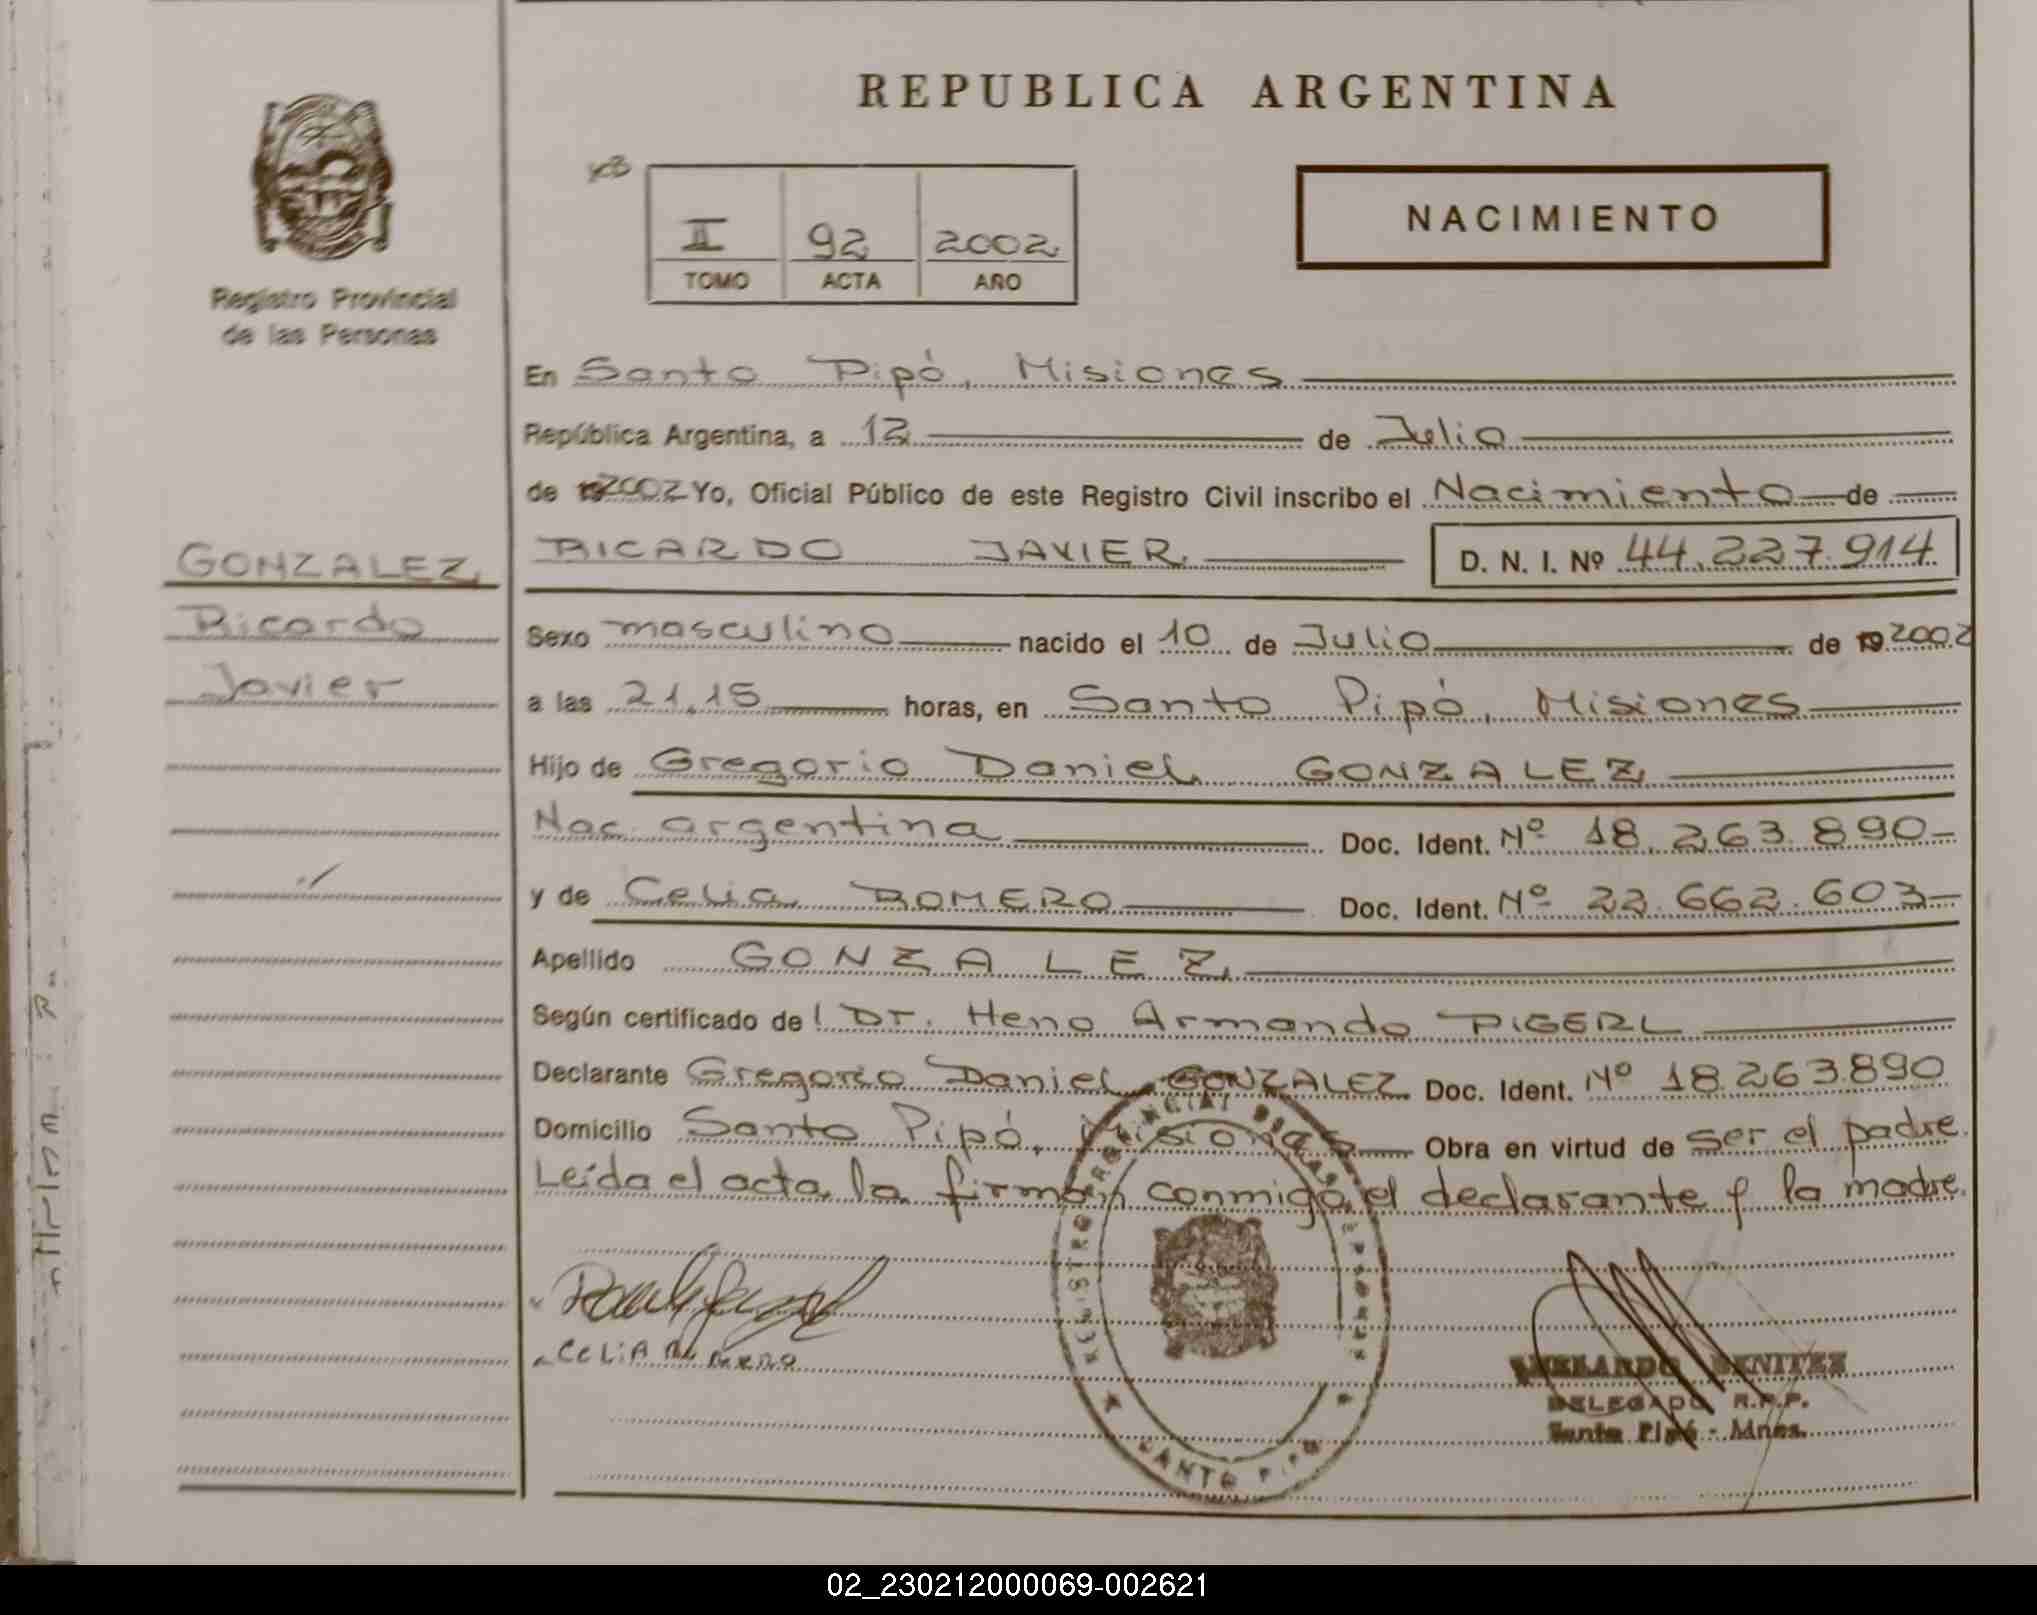 REPUBLICA ARGENTINA
NACIMIENTO
II 92 2002
TOMO ACTA AÑO
Registro Provincial
de las Personas
GONZALEZ,
Ricardo
Javier
En Santo Pipó, Misiones
República Argentina, a 12 de Julio
de 192002 Yo, Oficial Público de este Registro Civil inscribo el Nacimiento de
RICARDO JAVIER. D. N. I. Nº 44.227.914
Sexo masculino nacido el 10 de Julio de 19 2002
a las 21,15 horas, en Santo Pipó, Misiones
Hijo de Gregorio Daniel GONZALEZ,
Nac. argentina Doc. Ident. Nº 18.263.890-
y de Celia ROMERO Doc. Ident. Nº 22.662.603-
Apellido GONZALEZ,
Según certificado de l Dr. Heno Armando PIGERL
Declarante Gregorio Daniel GONZALEZ Doc. Ident. Nº 18.263.890
Domicilio Santo Pipó, Misiones Obra en virtud de ser el padre.
Leída el acta la firman conmigo el declarante y la madre.
CELIA ROMERO
REGISTRO PROVINCIAL DE LAS PERSONAS
SANTO PIPO
ABELARDO BENITEZ
DELEGADO R.P.P.
Santo Pipó - Mnes.
02_230212000069-002621